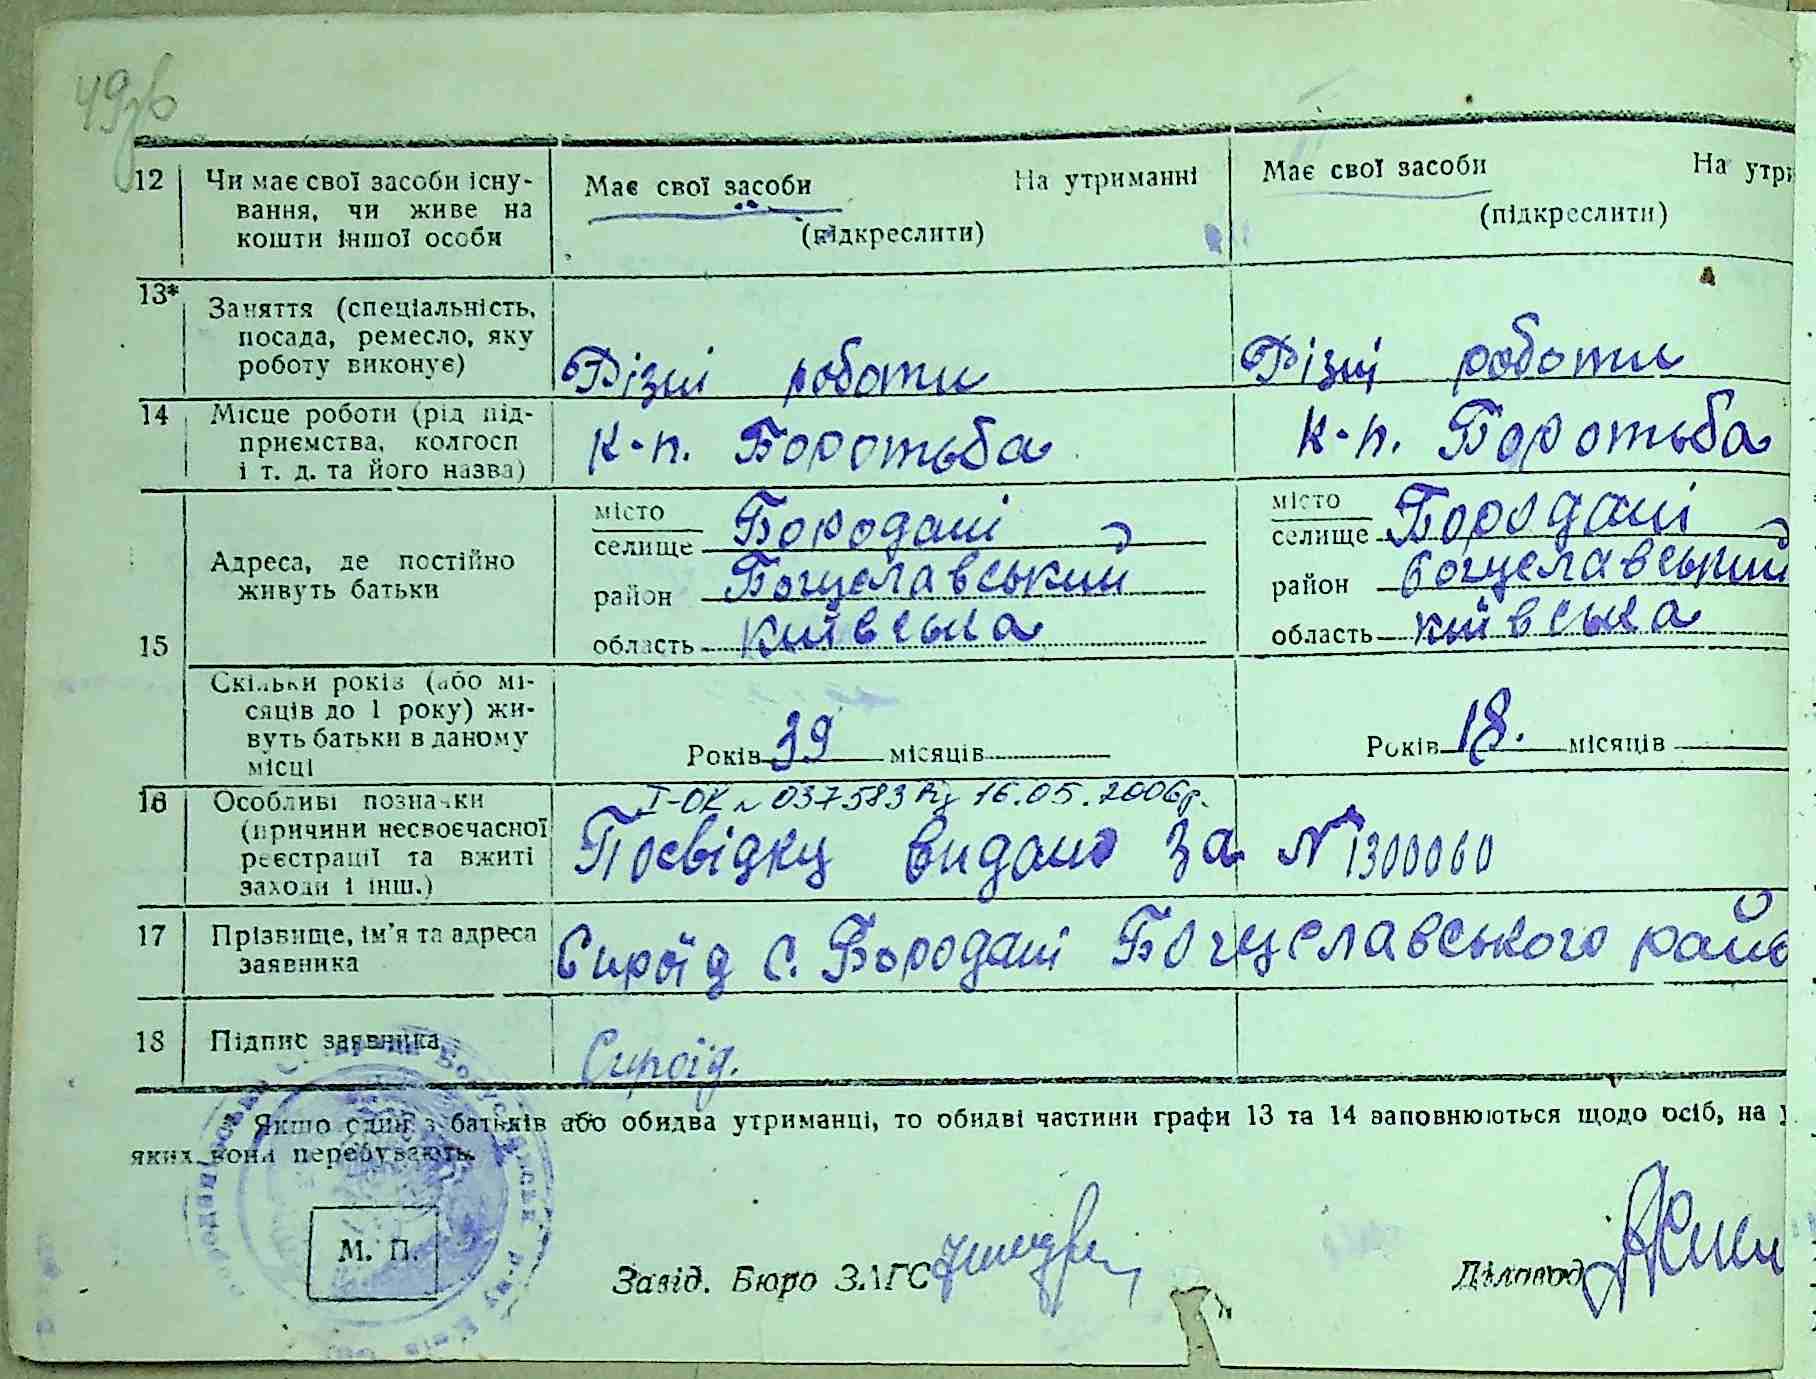 49зв
12 Чи має свої засоби існу- Має свої засоби На утриманні Має свої засоби На утри
вання, чи живе на (підкреслити) (підкреслити)
кошти іншої особи
13* Заняття (спеціальність,
посада, ремесло, яку
роботу виконує) Різні роботи Різні роботи
14 Місце роботи (рід під-
приємства, колгосп к-п. Боротьба к-п. Боротьба
і т. д. та його назва)
місто Бородані місто Бородані
селище селище
Адреса, де постійно
живуть батьки район Богуславський район богуславський
15 область київська область київська
Скільки років (або мі-
сяців до 1 року) жи-
вуть батьки в даному Років 39 місяців Років 18. місяців
місці
16 Особливі позначки І-ОК № 037583 від 16.05.2006р.
(причини несвоєчасної Посвідку видано за № 1300060
реєстрації та вжиті
заходи і інш.)
17 Прізвище, ім'я та адреса Сироїд с. Бородані Богуславського райо
заявника
18 Підпис заявника Сироїд.
Якщо один з батьків або обидва утриманці, то обидві частини графи 13 та 14 заповнюються щодо осіб, на у
яких вони перебувають.
М. П.
Завід. Бюро ЗАГС Діловод